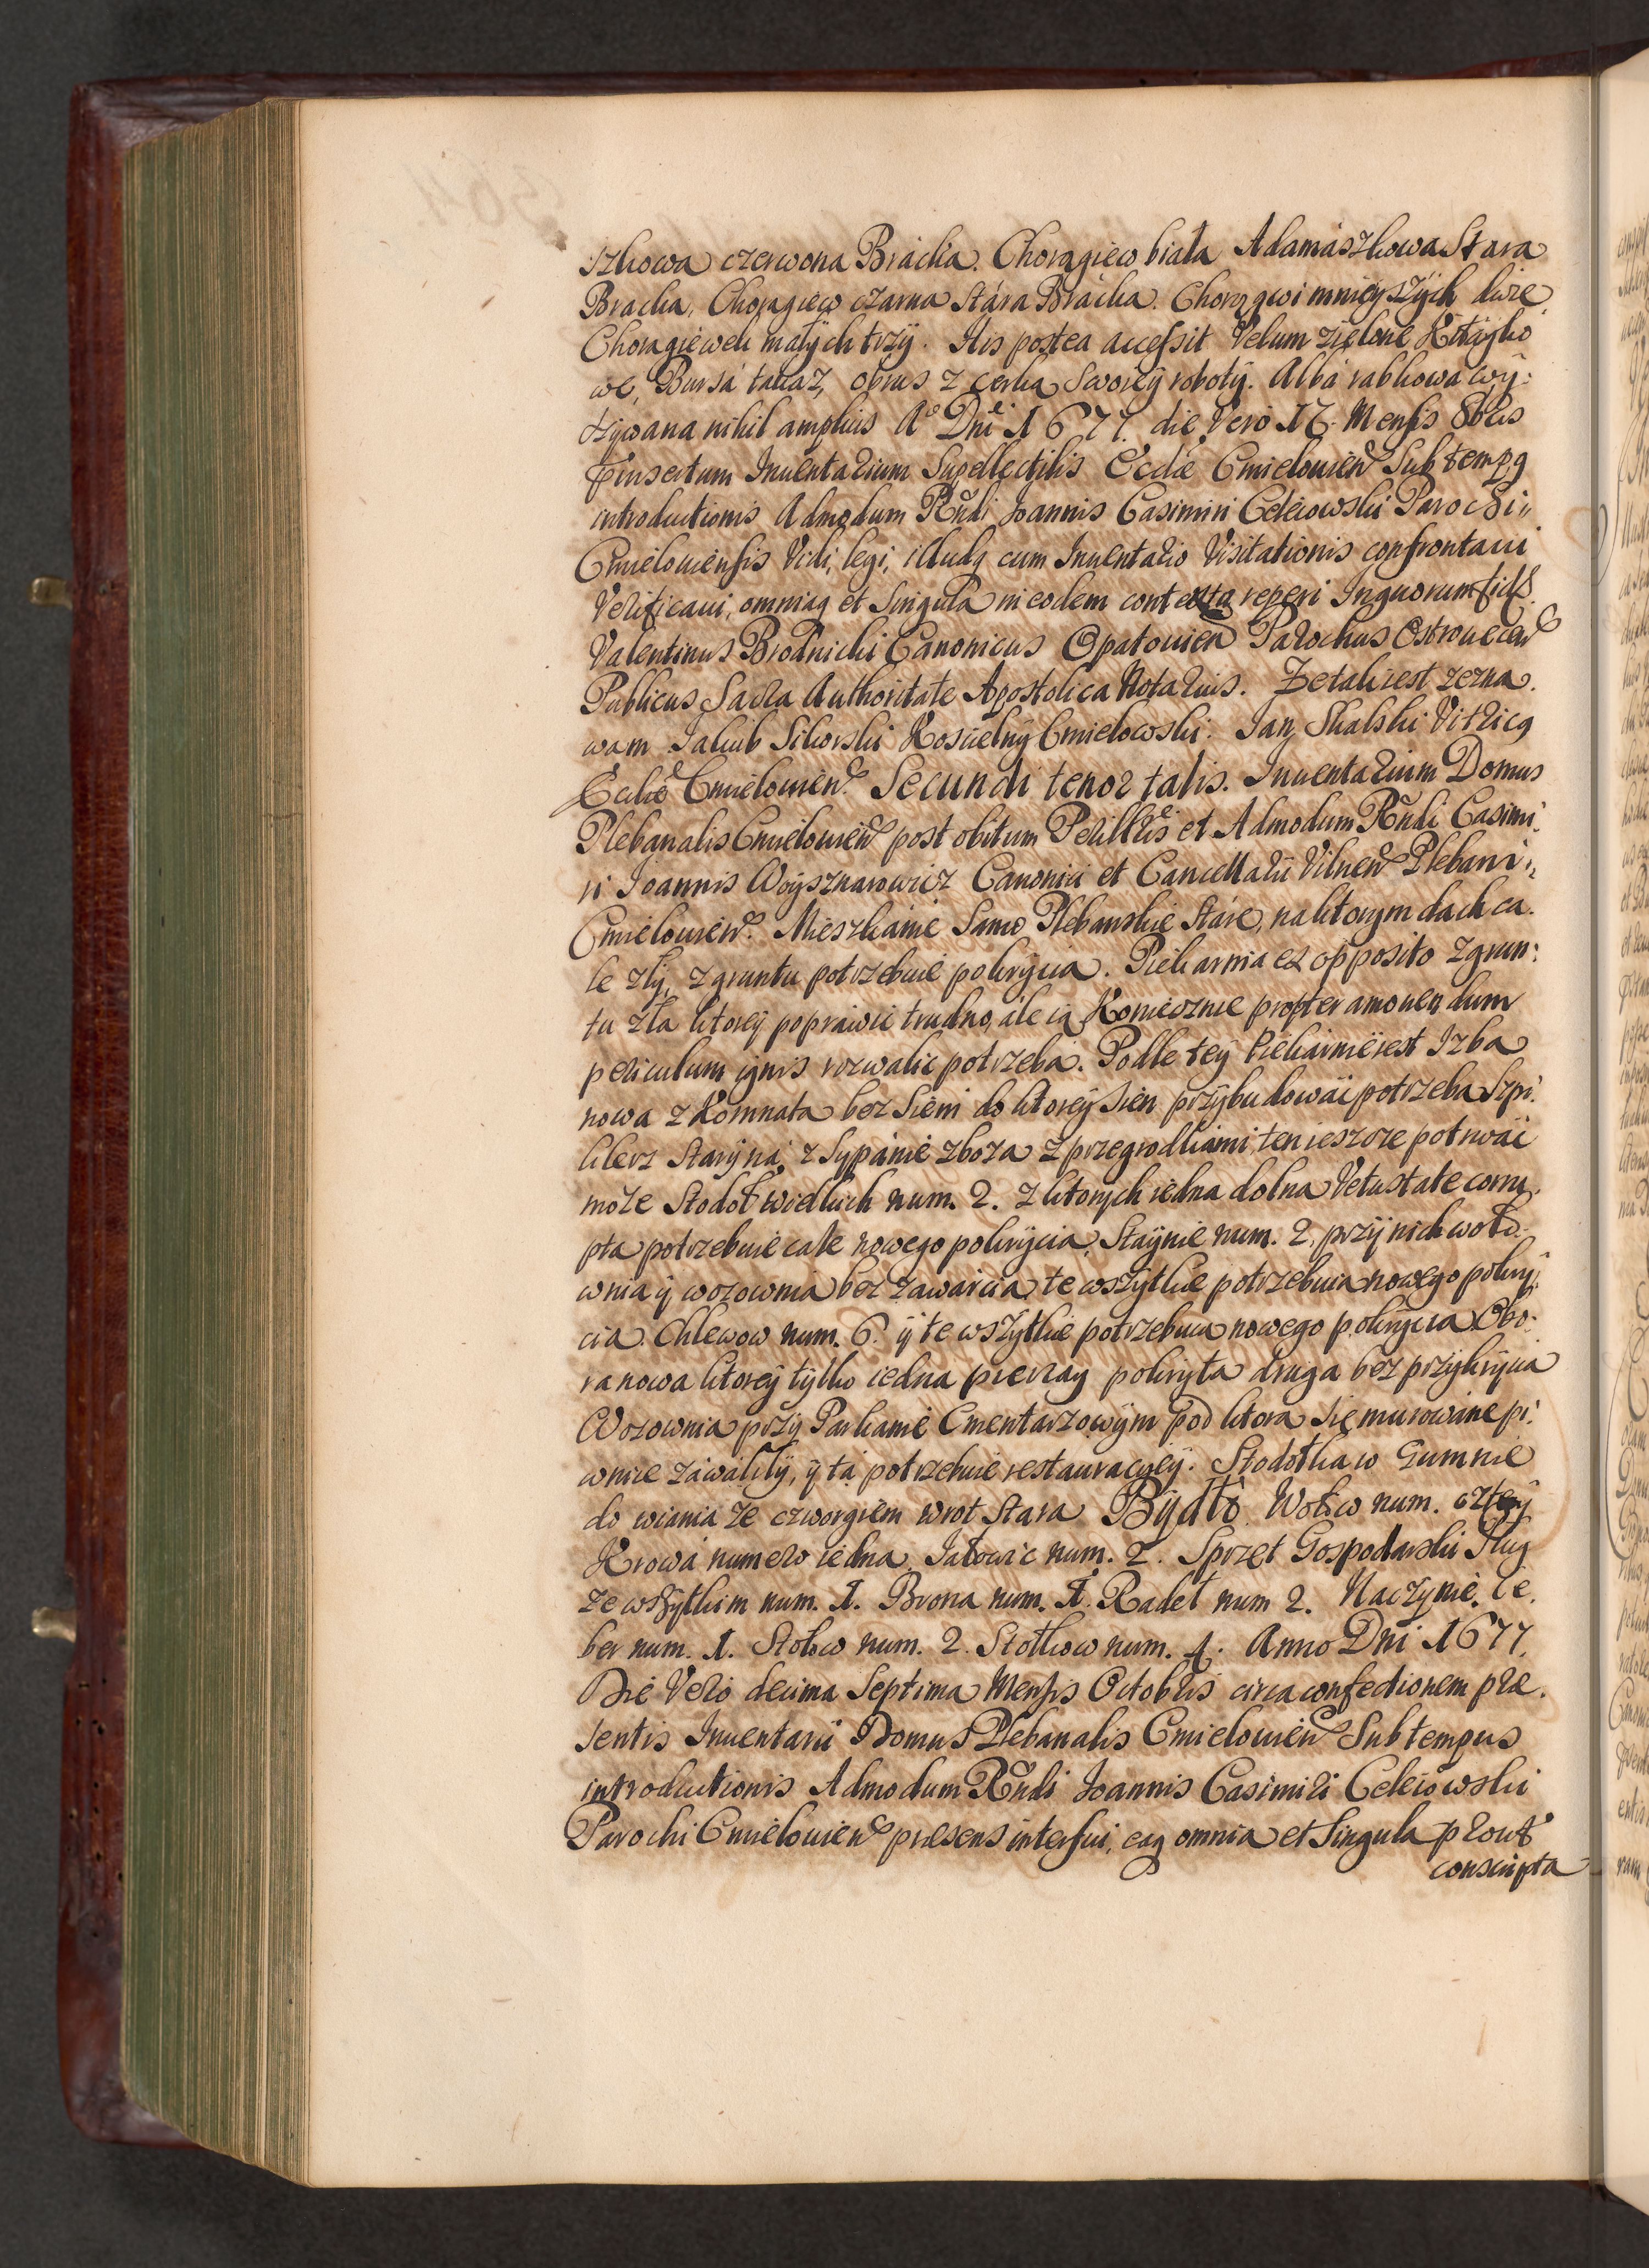 szkowa czerwona Bracka. Chorągiew biała Adamaszkowa Stara
Bracka, Chorągiew czarna Stára Bracka. Chorągwi mnieyszych dwie,
Chorągiewek małych trzy. His postea accessit Velum zielone Kitayko
we, Bursá takaz, obrus z cerka Swoiey roboty. Alba rabkowa wy:
szywana nihil amplius Aº Dni 1677. die Vero 17. Mensis 8bris
Pinsertum Inuentarium Supellectilis Eccliæ Cmielouien Sub tempq
introductionis Admodum Rndi Joannis Casimiri Celeiowski Parochi„
Cmielouiensis Vidi, legi, illudq cum Inuentario Visitationis confrontaui
Verificaui, omniaq et Singula in eodem contexta reperi Inquorum fidẽ.
Valentinus Brodnicki Canonicus Opatouien Parochus Ostrouecen
Publicus Sacra Authoritate Apostolica Notarius. Ze tak iest zezna.
wam Jakub Sikorski Kosćielny Cmielowski: Jan Skalski Vitricq
Eccliæ Cmielouien. Secundi tenor talis. Inuentarium Domus
Plebanalis Cmielouien post obitum Perillris et Admodum Rndi Casimi„
ri Joannis Woysznarowicz Canonici et Cancellarii Vilnen Plebani„
Cmielouien. Mieszkanie Samo Plebanskie Stáre, na ktorym dach ca.
le zly, z gruntu potrzebuie pokrycia. Piekarnia ex opposito z grun:
tu zła ktorey poprawić trudno, ale ią Koniecznie propter amouendum
periculum ignis rozwalić potrzeba. Podle tey Piekarnie iest Izba
nowa z Komnata bez Sieni do ktorey Sien przybudowáć potrzeba Szpi:
klerz Stary ná zSypánie zboza z przegrodkami, ten ieszcze potrwáć
może Stodoł wielkich num. 2. z ktorych iedna dolna Vetustate corru.
pta potrzebuie cale nowego pokrycia, Staynie num. 2, przy nich woło.
wnia y wozownia bez zawarcia te wszytkie potrzebuia nowego pokry:
cia. Chlewow num. 6. y te wszytkie potrzebuia nowego pokrycia Obo:
ra nowa ktorey tylko iedna pierzay pokryta druga bez przykrycia
Wozownia przy Parkanie Cmentarzowym pod ktora Sie murowáne pi:
wnice záwálily, y ta potrzebuie restauracyey. Stodołka w Gumnie
do wiania ze czworgiem wrot Stara Bydło Wołow num. cztery
Krowá numero iedna, Jałowic num. 2. Sprzęt Gospodarski Pług
ze wszytkim num. 1. Brona num. 1. Radeł num 2. Naczynie. Ce.
ber num. 1. Stołow num. 2. Stołkow num. 4. Anno Dni 1677.
Die Vero decima Septima Mensis Octobris circa confectionem præ.
sentis Inuentarii Domus Plebanalis Cmielouien Sub tempus
introductionis Admodum Rndi Joannis Casimiri Celeiowski
Parochi Cmielouien præsens interfui, eaq omnia et Singula prout
conscripta